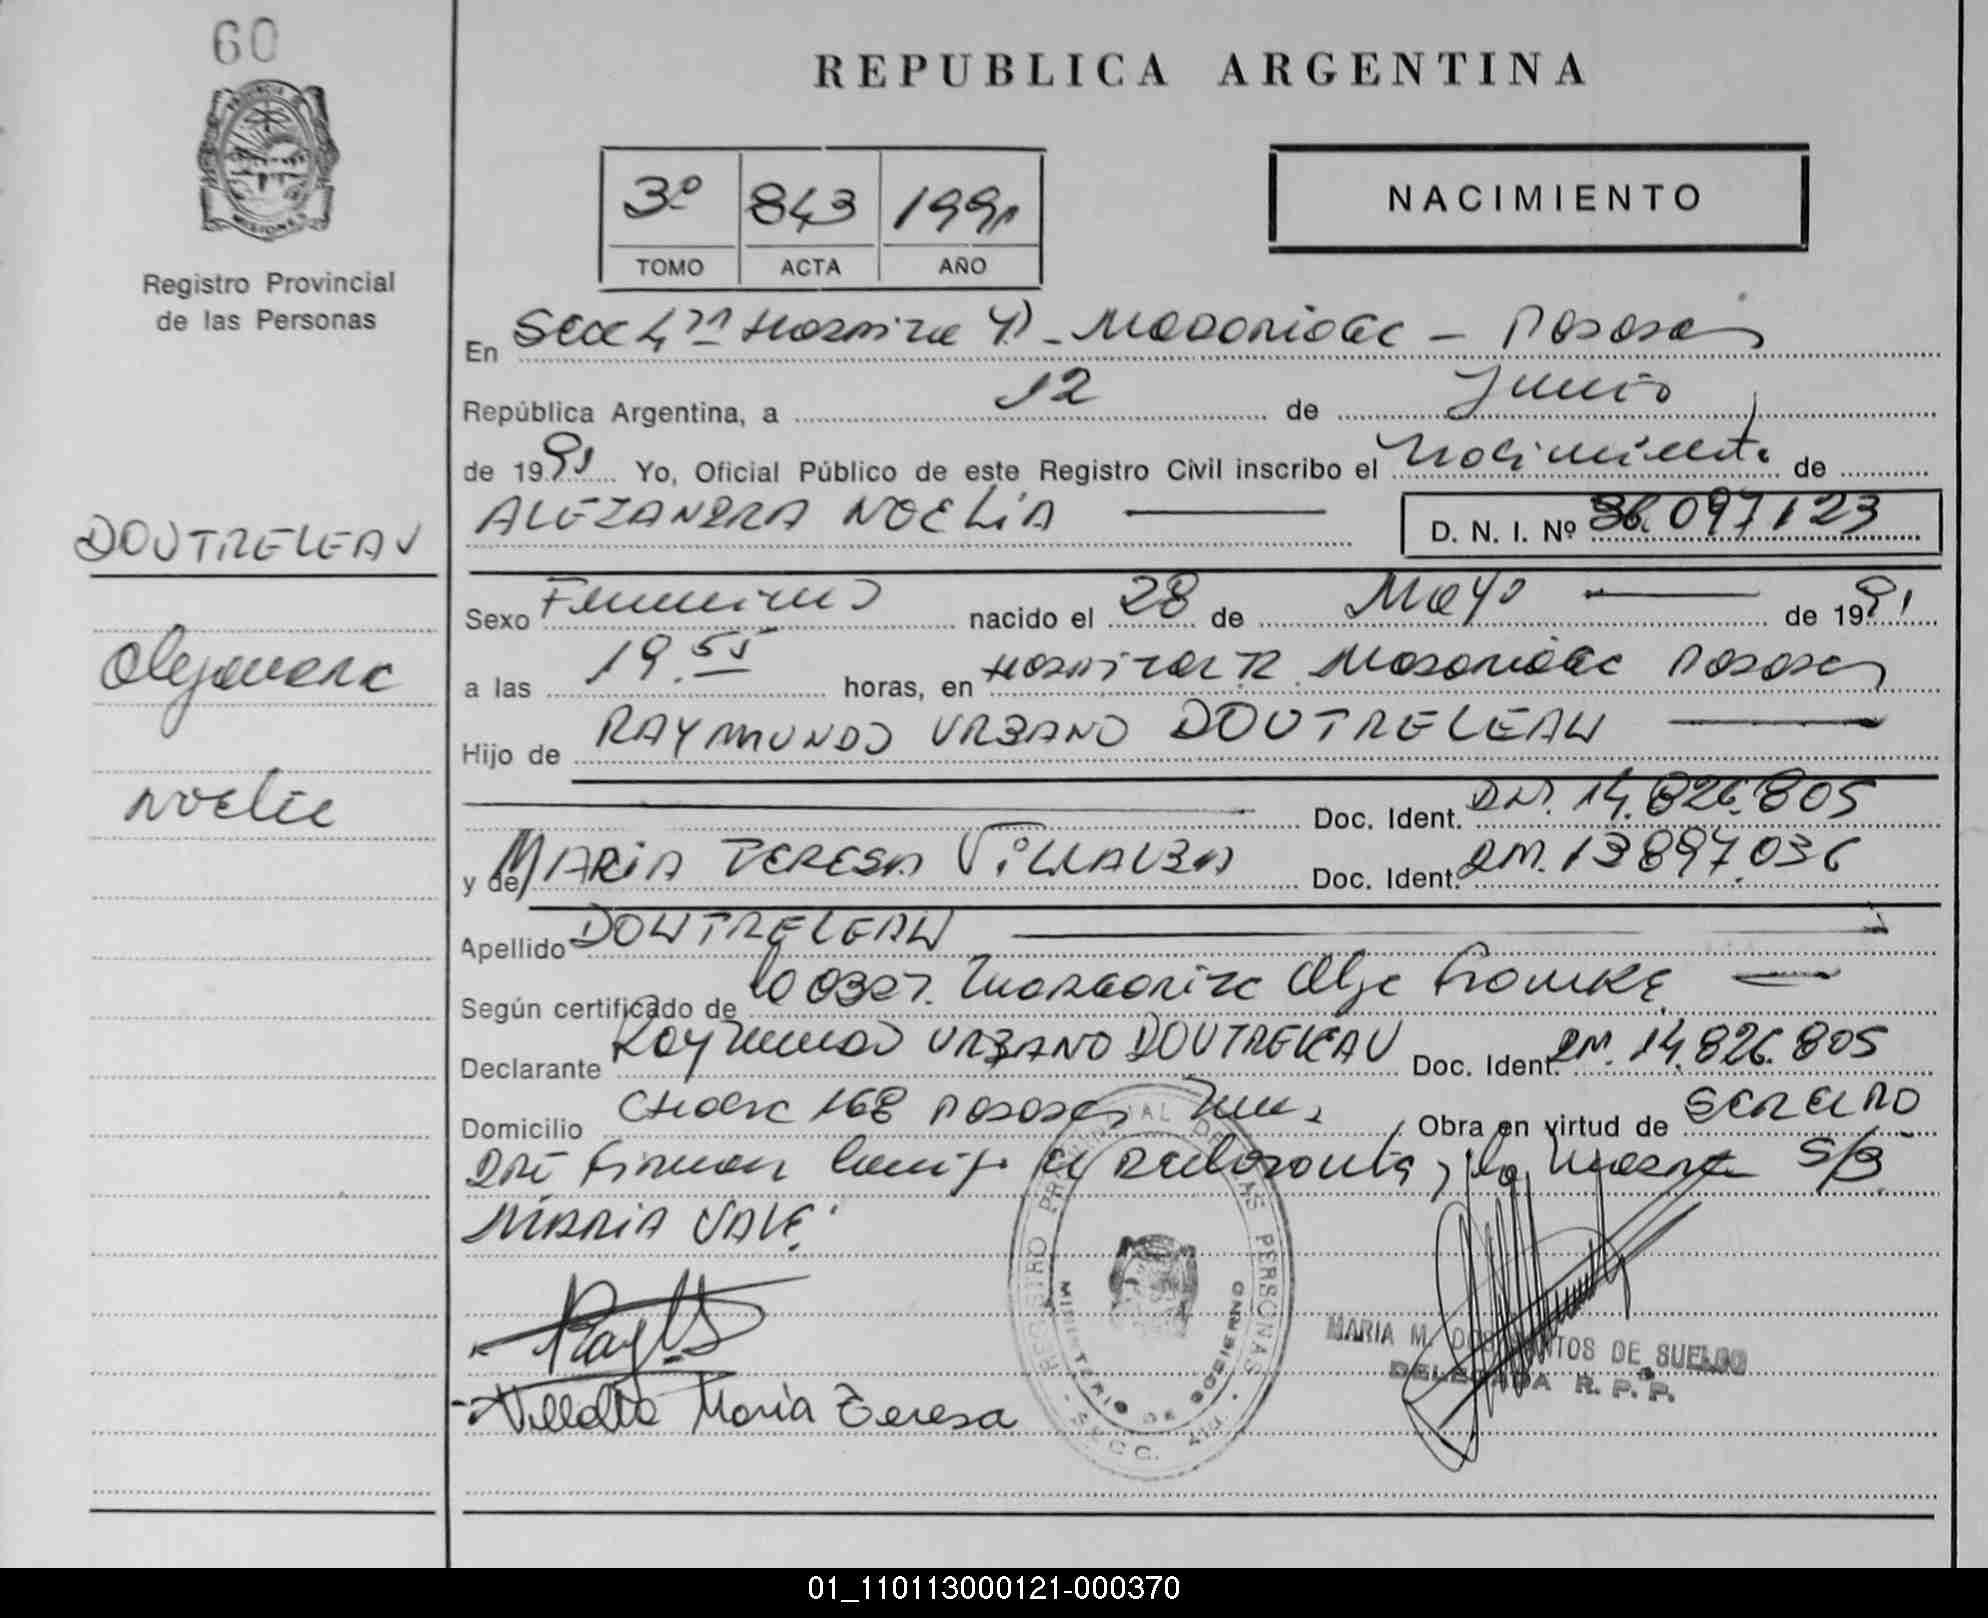 60
REPUBLICA ARGENTINA
PROVINCIA DE
MISIONES
Registro Provincial
de las Personas
3º 843 1991
TOMO ACTA AÑO
NACIMIENTO
En Secc 4ta Hospital R. Madariaga - Posadas
República Argentina, a 12 de Junio
de 1991 Yo, Oficial Público de este Registro Civil inscribo el Nacimiento de
ALEJANDRA NOELIA D. N. I. Nº 36.097.123
DOUTRELEAU
Alejandra
Noelia
Sexo Femenino nacido el 28 de Mayo de 1991
a las 19.55 horas, en Hospital R. Madariaga Posadas
Hijo de RAYMUNDO URBANO DOUTRELEAU
Doc. Ident. DNI. 14.826.805
y de MARIA TERESA VILLALBA Doc. Ident. DNI. 13897.036
Apellido DOUTRELEAU
Según certificado de la Obst. Margarita Olga
Declarante Raymundo URBANO DOUTRELEAU Doc. Ident. DNI. 14.826.805
Domicilio 168 Posadas Mnes Obra en virtud de
Firman el declarante, la Madre S/B
MARIA VALE
Villalba Maria Teresa
REGISTRO PROVINCIAL DE LAS PERSONAS
MINISTERIO DE GOBIERNO
SECC. 4ta.
MARIA M. DOS SANTOS DE SUELDO
DELEGADA R. P. P.
01_110113000121-000370